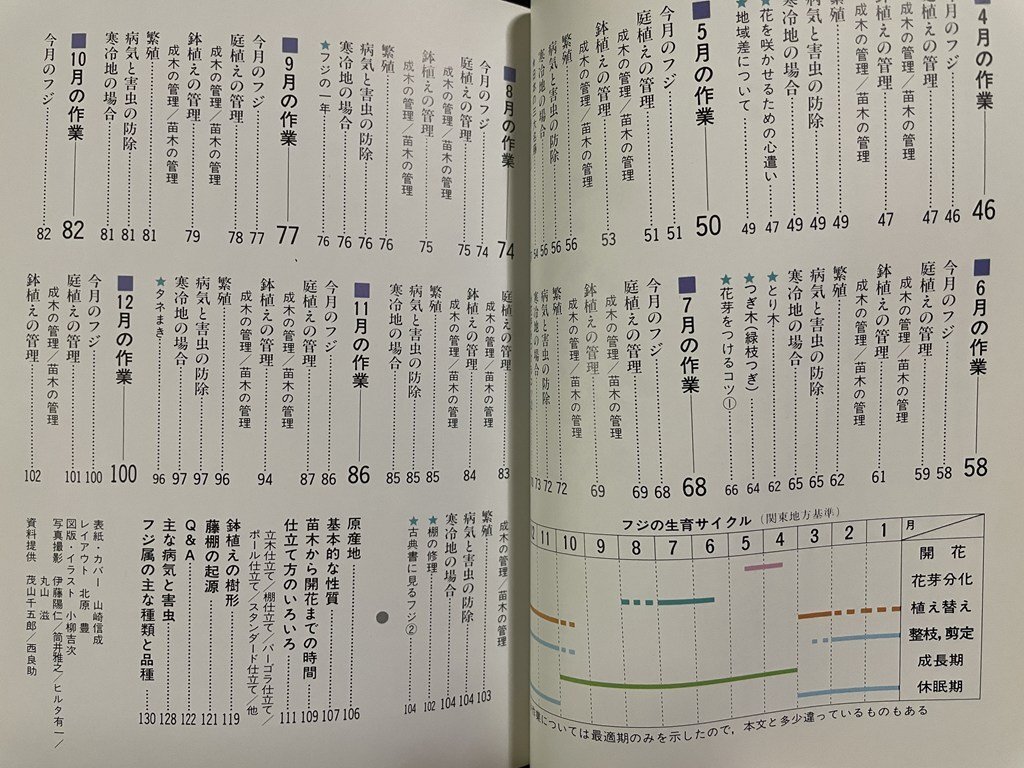 ■4月の作業 46
今月のフジ 46
庭植えの管理 47
成木の管理／苗木の管理
鉢植えの管理 47
成木の管理／苗木の管理
繁殖 49
病気と害虫の防除 49
寒冷地の場合 49
★花を咲かせるための心遣い 47
★地域差について 49
■5月の作業 50
今月のフジ 51
庭植えの管理 51
成木の管理／苗木の管理
鉢植えの管理 53
成木の管理／苗木の管理
繁殖 56
病気と害虫の防除 56
寒冷地の場合 56
■6月の作業 58
今月のフジ 58
庭植えの管理 59
成木の管理／苗木の管理
鉢植えの管理 61
成木の管理／苗木の管理
繁殖 62
病気と害虫の防除 65
寒冷地の場合 65
★とり木 62
★つぎ木（緑枝つぎ） 64
★花芽をつけるコツ① 66
■7月の作業 68
今月のフジ 68
庭植えの管理 69
成木の管理／苗木の管理
鉢植えの管理 69
成木の管理／苗木の管理
繁殖 72
病気と害虫の防除 72
寒冷地の場合 73
フジの生育サイクル（関東地方基準）
月 1 2 3 4 5 6 7 8 9 10 11
開花
花芽分化
植え替え
整枝，剪定
成長期
休眠期
業については最適期のみを示したので，本文と多少違っているものもある
■8月の作業 74
今月のフジ 74
庭植えの管理 75
成木の管理／苗木の管理
鉢植えの管理 75
成木の管理／苗木の管理
繁殖 76
病気と害虫の防除 76
寒冷地の場合 76
★フジの一年 76
■9月の作業 77
今月のフジ 77
庭植えの管理 78
成木の管理／苗木の管理
鉢植えの管理 79
成木の管理／苗木の管理
繁殖 81
病気と害虫の防除 81
寒冷地の場合 81
■10月の作業 82
今月のフジ 82
庭植えの管理 83
成木の管理／苗木の管理
鉢植えの管理 84
成木の管理／苗木の管理
繁殖 85
病気と害虫の防除 85
寒冷地の場合 85
■11月の作業 86
今月のフジ 86
庭植えの管理 87
成木の管理／苗木の管理
鉢植えの管理 94
成木の管理／苗木の管理
繁殖 96
病気と害虫の防除 97
寒冷地の場合 97
★タネまき 96
■12月の作業 100
今月のフジ 100
庭植えの管理 101
成木の管理／苗木の管理
鉢植えの管理 102
成木の管理／苗木の管理
繁殖 103
病気と害虫の防除 104
寒冷地の場合 104
★棚の修理 102
★古典書に見るフジ② 104
●
原産地 106
基本的な性質 107
苗木から開花までの時間 109
仕立て方のいろいろ 111
立木仕立て／棚仕立て／パーゴラ仕立て／
ポール仕立て／スタンダード仕立て／他
鉢植えの樹形 119
藤棚の起源 121
Q＆A 122
主な病気と害虫 128
フジ属の主な種類と品種 130
表紙・カバー 山崎信成
レイアウト 北原 豊
図版・イラスト 小柳吉次
写真撮影 伊藤陽仁／筒井雅之／ヒルタ有一／
丸山 滋
資料提供 茂山千五郎／西良助